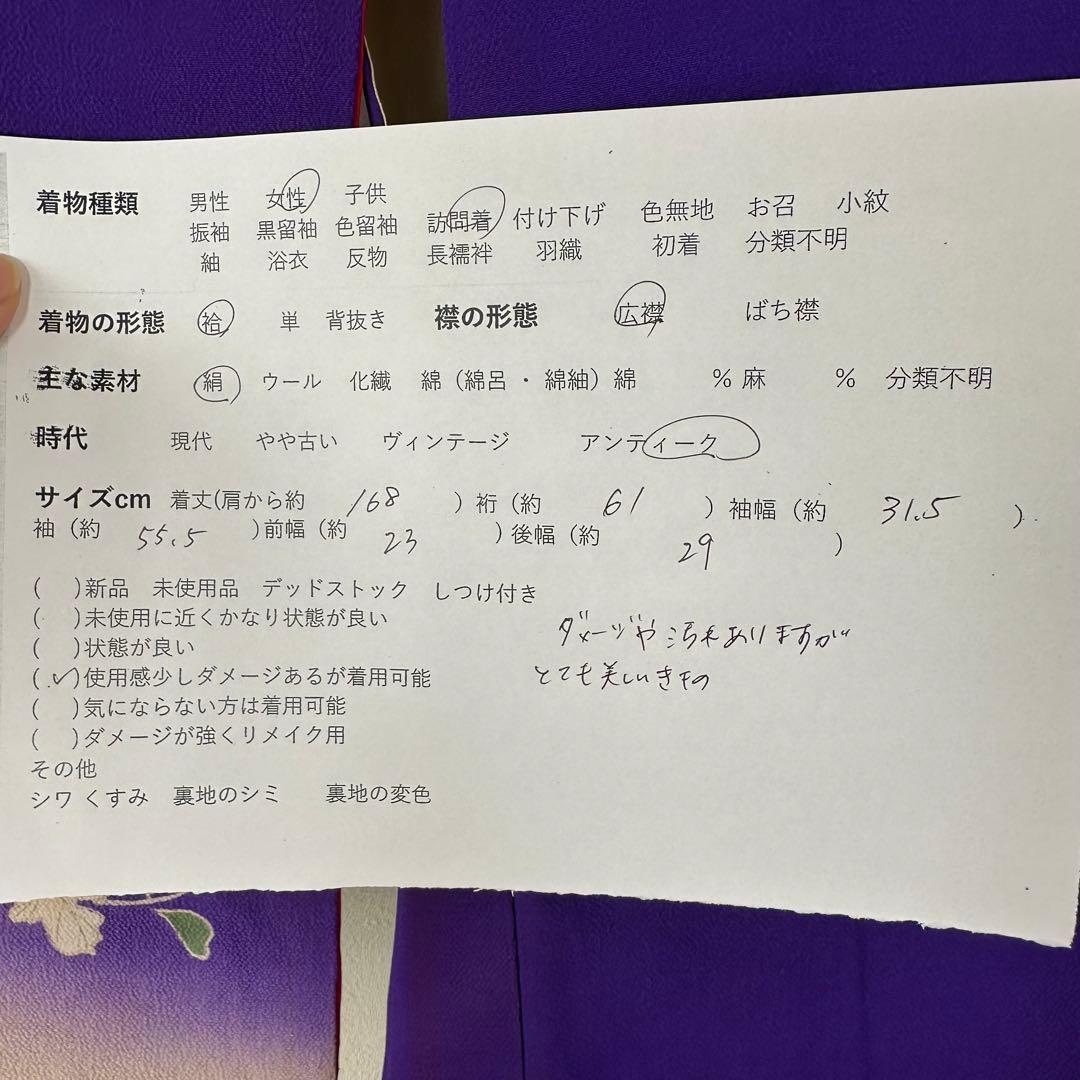 着物種類 男性 女性 子供
振袖 黒留袖 色留袖 訪問着 付け下げ 色無地 お召 小紋
紬 浴衣 反物 長襦袢 羽織 初着 分類不明
着物の形態 袷 単 背抜き 襟の形態 広襟 ばち襟
主な素材 絹 ウール 化繊 綿（綿呂・綿紬）綿 % 麻 % 分類不明
時代 現代 やや古い ヴィンテージ アンティーク
サイズcm 着丈(肩から約 168 ）裄（約 61 ）袖幅（約 31.5 ）
袖（約 55.5 ）前幅（約 23 ）後幅（約 29 ）
( )新品 未使用品 デッドストック しつけ付き
( )未使用に近くかなり状態が良い
( )状態が良い
(✓)使用感少しダメージあるが着用可能
( )気にならない方は着用可能
( )ダメージが強くリメイク用
ダメージや汚れありますが
とても美しいきもの
その他
シワ くすみ 裏地のシミ 裏地の変色